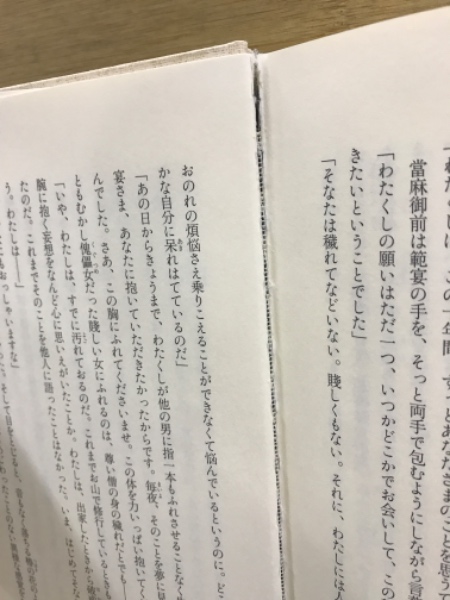 當麻御前は範宴の手を、そっと両手で包むようにしながら言
「わたくしの願いはただ一つ、いつかどこかでお会いして、この
きたいということでした」
「そなたは穢れてなどいない。賤しくもない。それに、わたしには
おのれの煩悩さえ乗りこえることができなくて悩んでいるというのに。ど
かな自分に呆れはてているのだ」
「あの日からきょうまで、わたくしが他の男に指一本もふれさせることなく
宴さま、あなたに抱いていただきたかったからです。毎夜、そのことを夢に
んでした。さあ、この胸にふれてくださいませ。この体を力いっぱい抱いてく
ともむかし傀儡女だった賤しい女にふれるのは、尊い僧の身の穢れだとでも
「いや、わたしは、すでに汚れておるのだ。これまでお山で修行しているときも
腕に抱く妄想をなんど心に思いえがいたことか。わたしは、出家したときから
たのだ。これまでそのことを他人に語ったことはなかった。いま、はじめて
う。わたしは――」